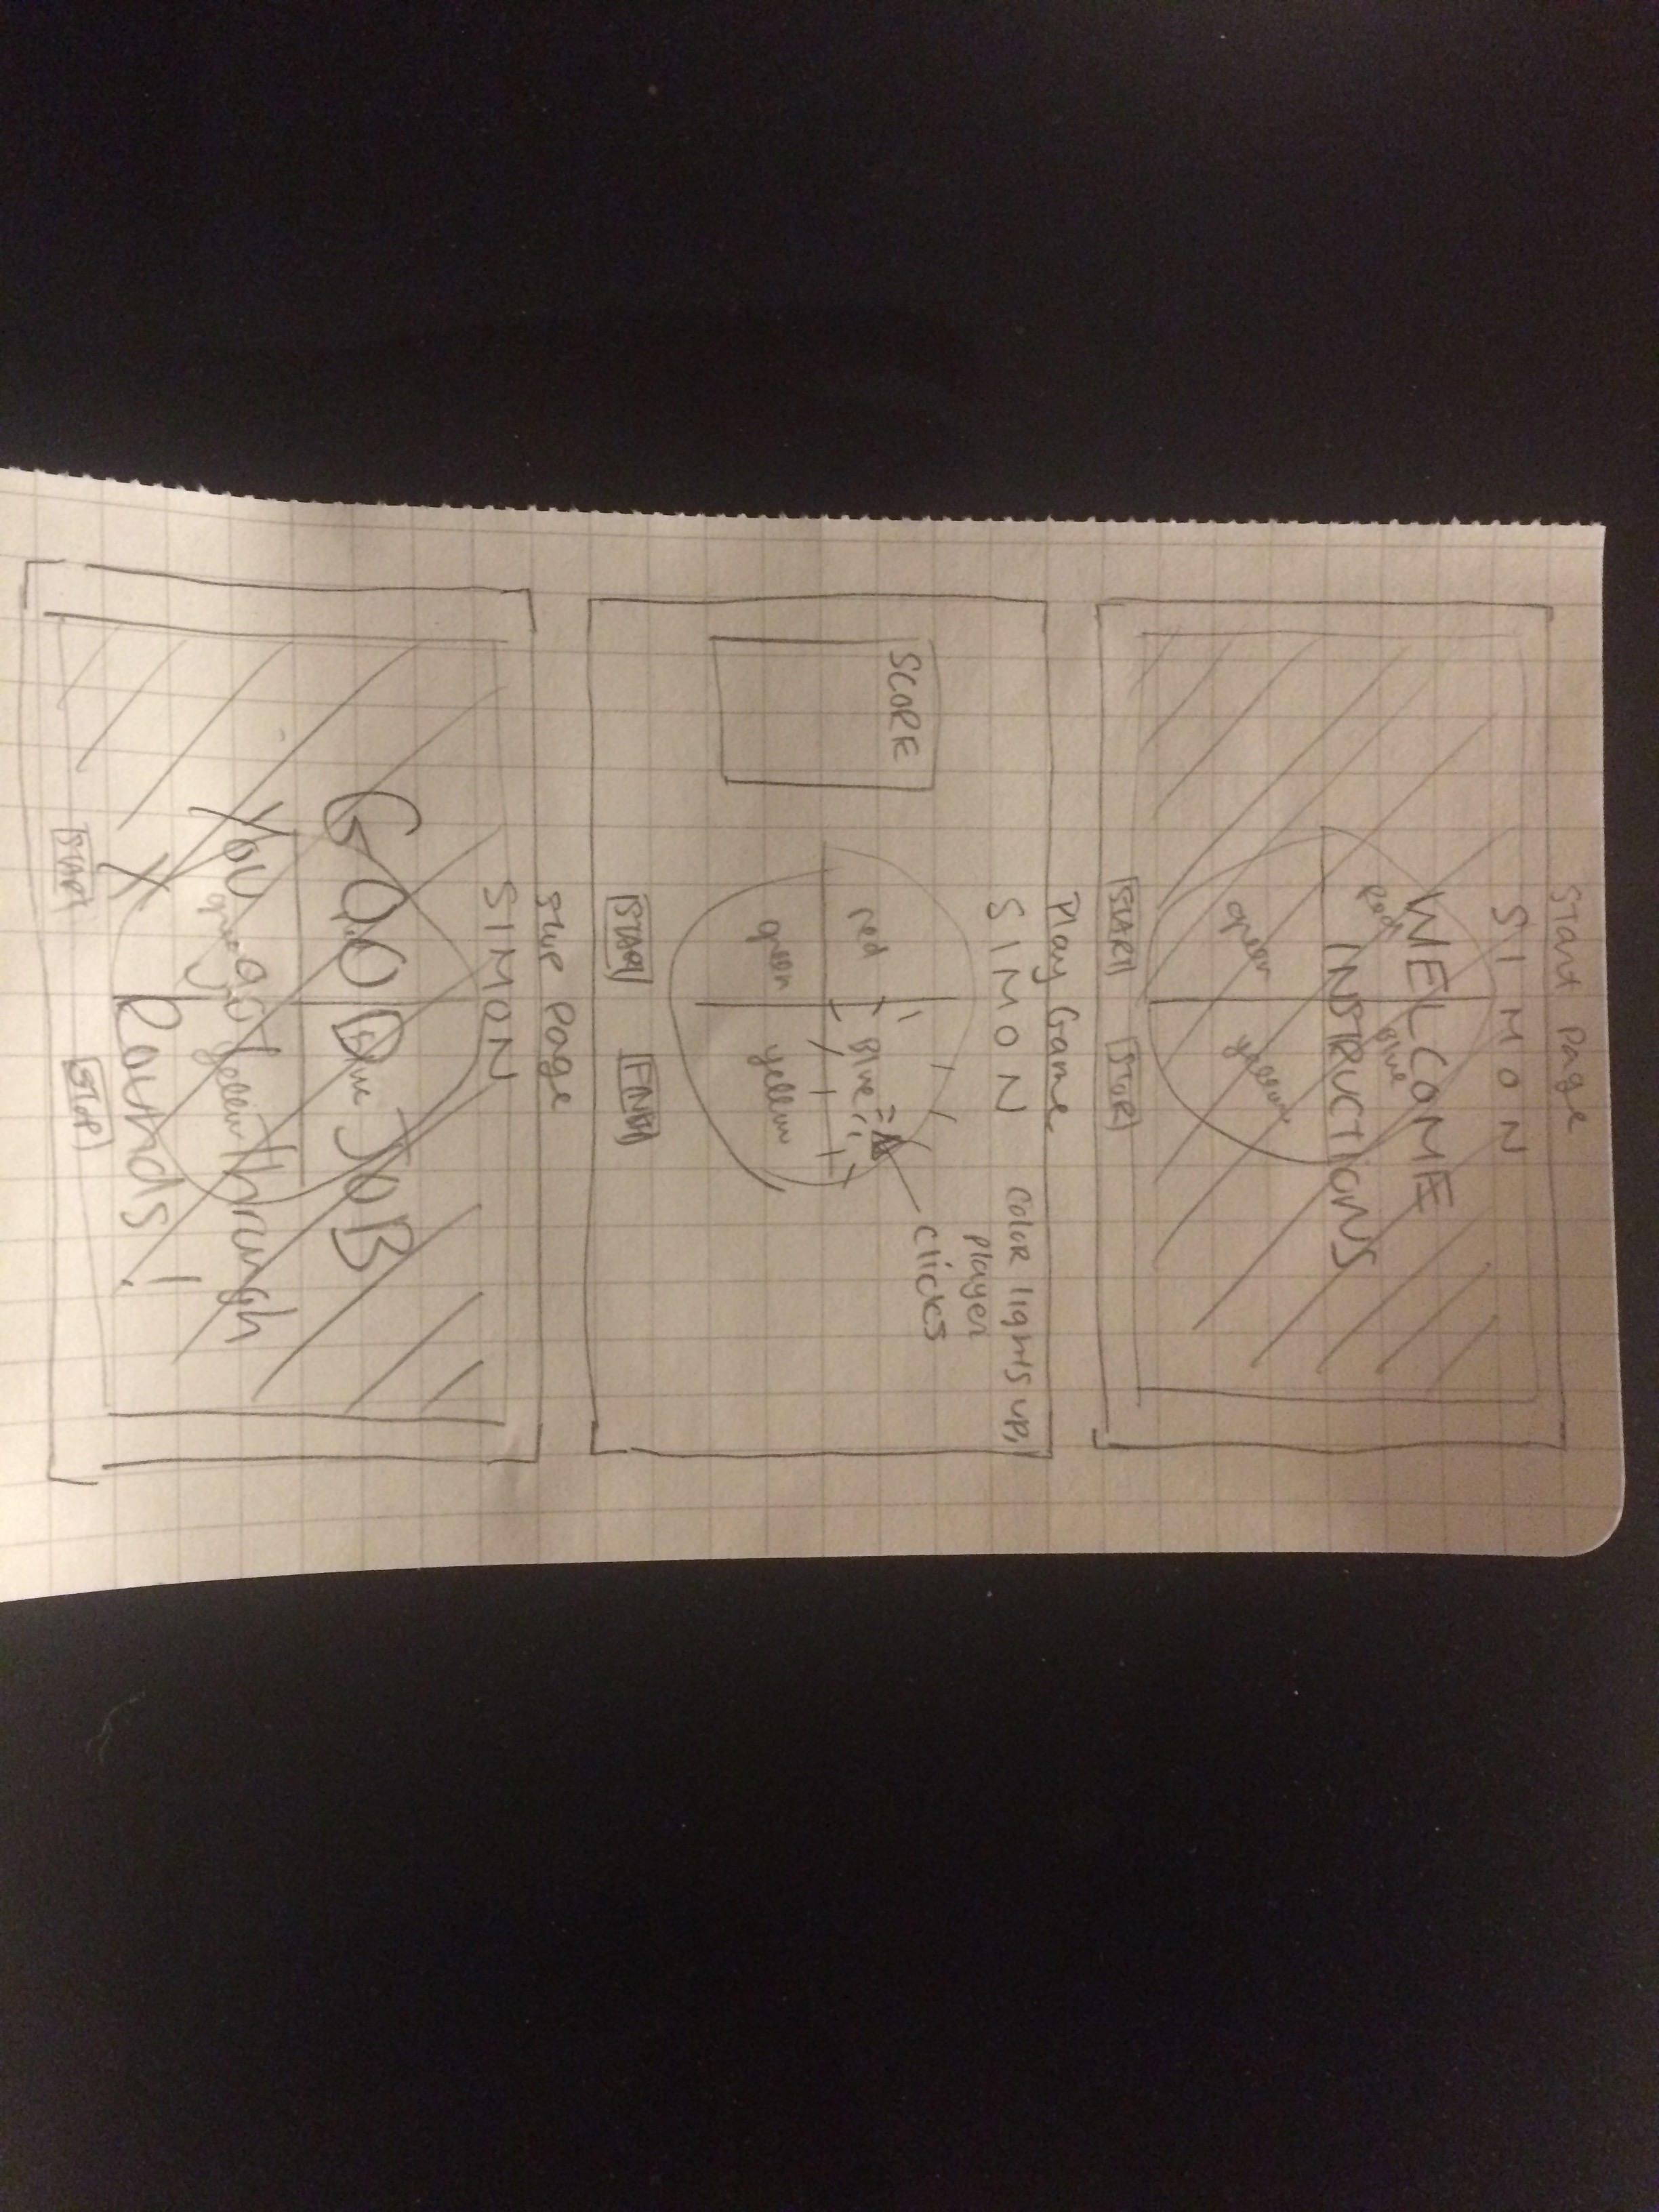 Start Page
SIMON
WELCOME
INSTRUCTIONS
Red Blue
green yellow
START STOP
Play Game
SIMON
Color lights up,
player
clicks
SCORE
red Blue
green yellow
START
Page
SIMON
GOOD JOB
Blue
You got through
green yellow
X Rounds!
START STOP